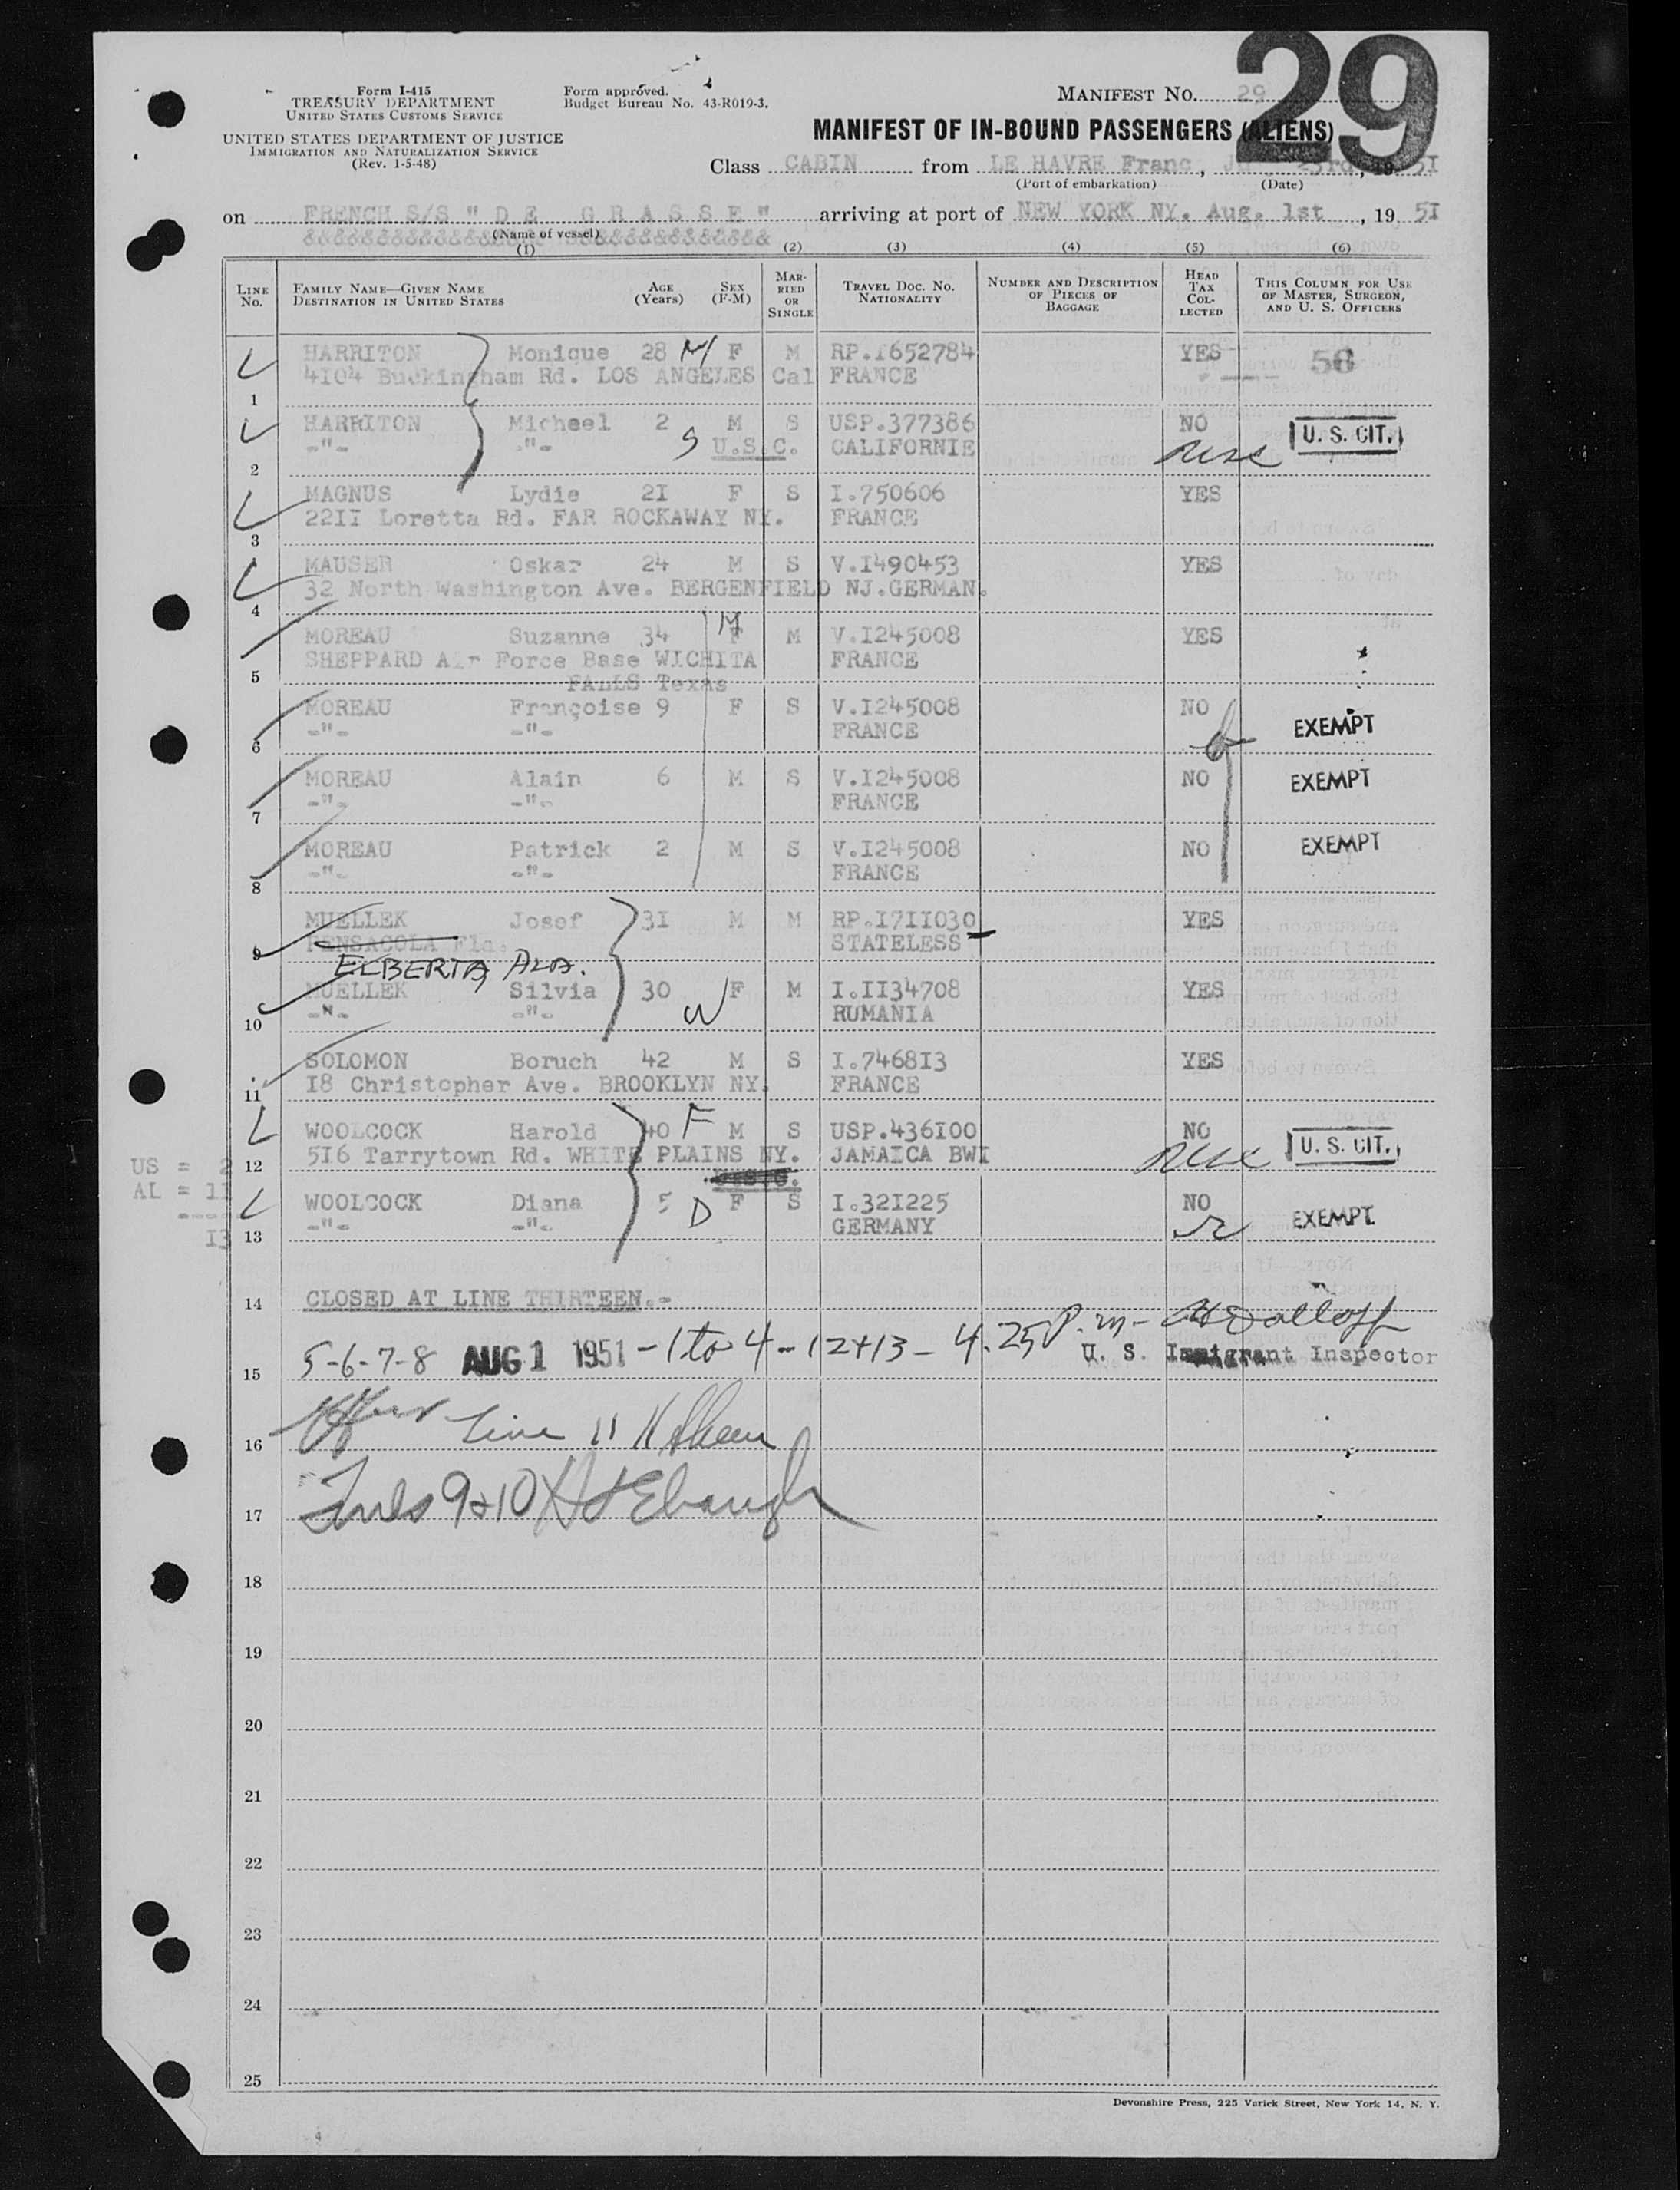 29
Form I-415
TREASURY DEPARTMENT
UNITED STATES CUSTOMS SERVICE
UNITED STATES DEPARTMENT OF JUSTICE
IMMIGRATION AND NATURALIZATION SERVICE
(Rev. 1-5-48)
Form approved.
Budget Bureau No. 43-R019-3.
MANIFEST NO. 29
MANIFEST OF IN-BOUND PASSENGERS (ALIENS)
Class CABIN from LE HAVRE Franc, 23rd, 19 51
(Port of embarkation) (Date)
on FRENCH S/S " D E G R A S S E " arriving at port of NEW YORK NY. Aug. 1st , 19 5I
(Name of vessel)
(1) (2) (3) (4) (5) (6)
LINE No. FAMILY NAME—GIVEN NAME DESTINATION IN UNITED STATES AGE (Years) SEX (F-M) MARRIED OR SINGLE TRAVEL DOC. NO. NATIONALITY NUMBER AND DESCRIPTION OF PIECES OF BAGGAGE HEAD TAX COLLECTED THIS COLUMN FOR USE OF MASTER, SURGEON, AND U. S. OFFICERS
HARRITON Monique 28 M F M RP.I652784 YES 56
4I04 Buckingham Rd. LOS ANGELES Cal FRANCE
1
HARRITON Micheel 2 M S USP.377386 NO U. S. CIT.
-"- -"- S U.S.C. CALIFORNIE
2
MAGNUS Lydie 2I F S I.750606 YES
22II Loretta Rd. FAR ROCKAWAY NY. FRANCE
3
MAUSER Oskar 24 M S V.I490453 YES
32 North Washington Ave. BERGENFIELD NJ.GERMAN.
4
MOREAU Suzanne 34 M F M V.I245008 YES
SHEPPARD Air Force Base WICHITA FRANCE
5
FALLS Texas
MOREAU Françoise 9 F S V.I245008 NO EXEMPT
-"- -"- FRANCE
6
MOREAU Alain 6 M S V.I245008 NO EXEMPT
-"- -"- FRANCE
7
MOREAU Patrick 2 M S V.I245008 NO EXEMPT
-"- -"- FRANCE
8
MUELLEK Josef 3I M M RP.I7II030 YES
PENSACOLA Fla. STATELESS
9
ELBERTA ALA.
MUELLEK Silvia 30 W F M I.II34708 YES
-"- -"- RUMANIA
10
SOLOMON Boruch 42 M S I.7468I3 YES
I8 Christopher Ave. BROOKLYN NY. FRANCE
11
WOOLCOCK Harold 40 F M S USP.436I00 NO U. S. CIT.
5I6 Tarrytown Rd. WHITE PLAINS NY. JAMAICA BWI
US = 2 12
AL = 11
WOOLCOCK Diana 5 D F S I.32I225 NO EXEMPT
-"- -"- GERMANY
13 13
14 CLOSED AT LINE THIRTEEN.-
5-6-7-8 AUG 1 1951 - 1 to 4 - 12+13 - 4.25 P.m-
U. S. Immigrant Inspector
15
Line 11
16
Lines 9+10
17
18
19
20
21
22
23
24
25
Devonshire Press, 225 Varick Street, New York 14, N. Y.